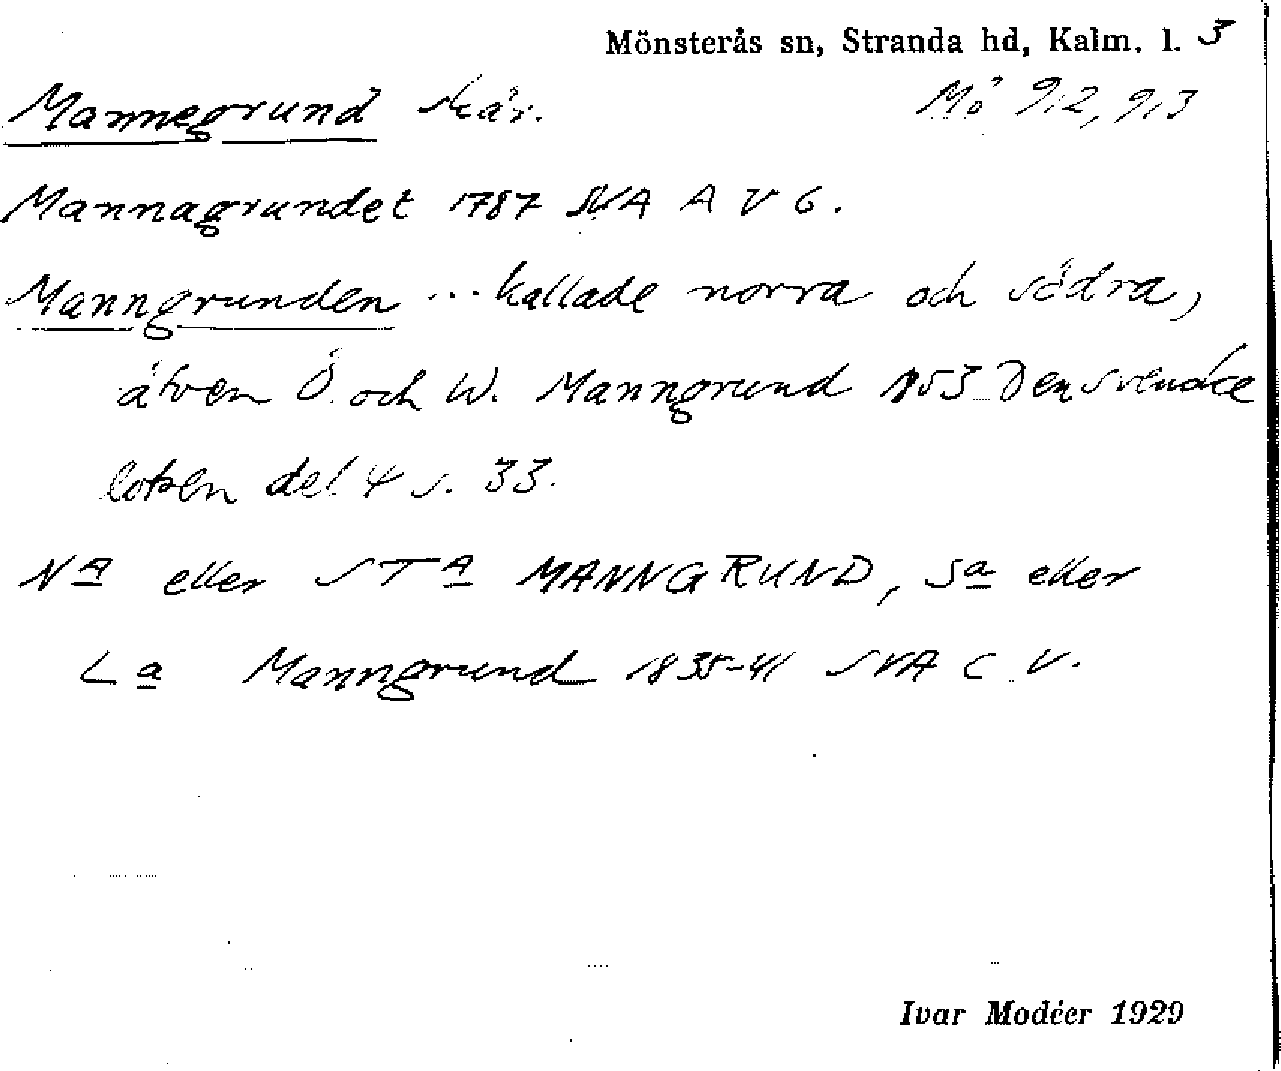 Mönsterås sn, Stranda hd, Kalm. l. 3
Mannegrund skär. Mö 912, 913
Mannagrundet 1787 SVA A V 6.
Manngrunden ... kallade norra och södra,
äfven Ö. och W. Manngrund 1853 Den svenska
lotsen del 4 s. 33.
Na eller STa MANNGRUND, Sa eller
La Manngrund 1835-41 SVA C V.
Ivar Modéer 1929